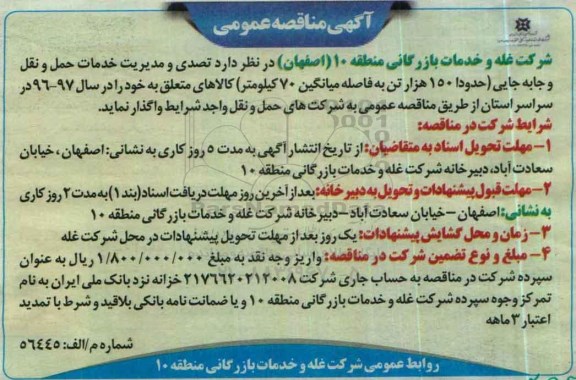 آگهی مناقصه عمومی
شرکت غله و خدمات بازرگانی منطقه ۱۰ (اصفهان) در نظر دارد تصدی و مدیریت خدمات حمل و نقل
و جابه جایی (حدودا ۱۵۰ هزار تن به فاصله میانگین ۷۰ کیلومتر) کالاهای متعلق به خود را در سال ۹۷-۹۶ در
سراسر استان از طریق مناقصه عمومی به شرکت های حمل و نقل واجد شرایط واگذار نماید.
شرایط شرکت در مناقصه:
۱- مهلت تحویل اسناد به متقاضیان: از تاریخ انتشار آگهی به مدت ۵ روز کاری به نشانی: اصفهان ، خیابان
سعادت آباد، دبیرخانه شرکت غله و خدمات بازرگانی منطقه ۱۰
۲- مهلت قبول پیشنهادات و تحویل به دبیرخانه: بعد از آخرین روز مهلت دریافت اسناد (بند ۱) به مدت ۲ روز کاری
به نشانی: اصفهان - خیابان سعادت آباد - دبیرخانه شرکت غله و خدمات بازرگانی منطقه ۱۰
۳- زمان و محل گشایش پیشنهادات: یک روز بعد از مهلت تحویل پیشنهادات در محل شرکت غله
۴- مبلغ و نوع تضمین شرکت در مناقصه: واریز وجه نقد به مبلغ ۱/۸۰۰/۰۰۰/۰۰۰ ریال به عنوان
سپرده شرکت در مناقصه به حساب جاری شرکت ۲۱۷۶۶۲۰۲۱۲۰۰۸ خزانه نزد بانک ملی ایران به نام
تمرکز وجوه سپرده شرکت غله و خدمات بازرگانی منطقه ۱۰ و یا ضمانت نامه بانکی بلاقید و شرط با تمدید
اعتبار ۳ ماهه
شماره م/الف: ۵۶۴۴۵
روابط عمومی شرکت غله و خدمات بازرگانی منطقه ۱۰